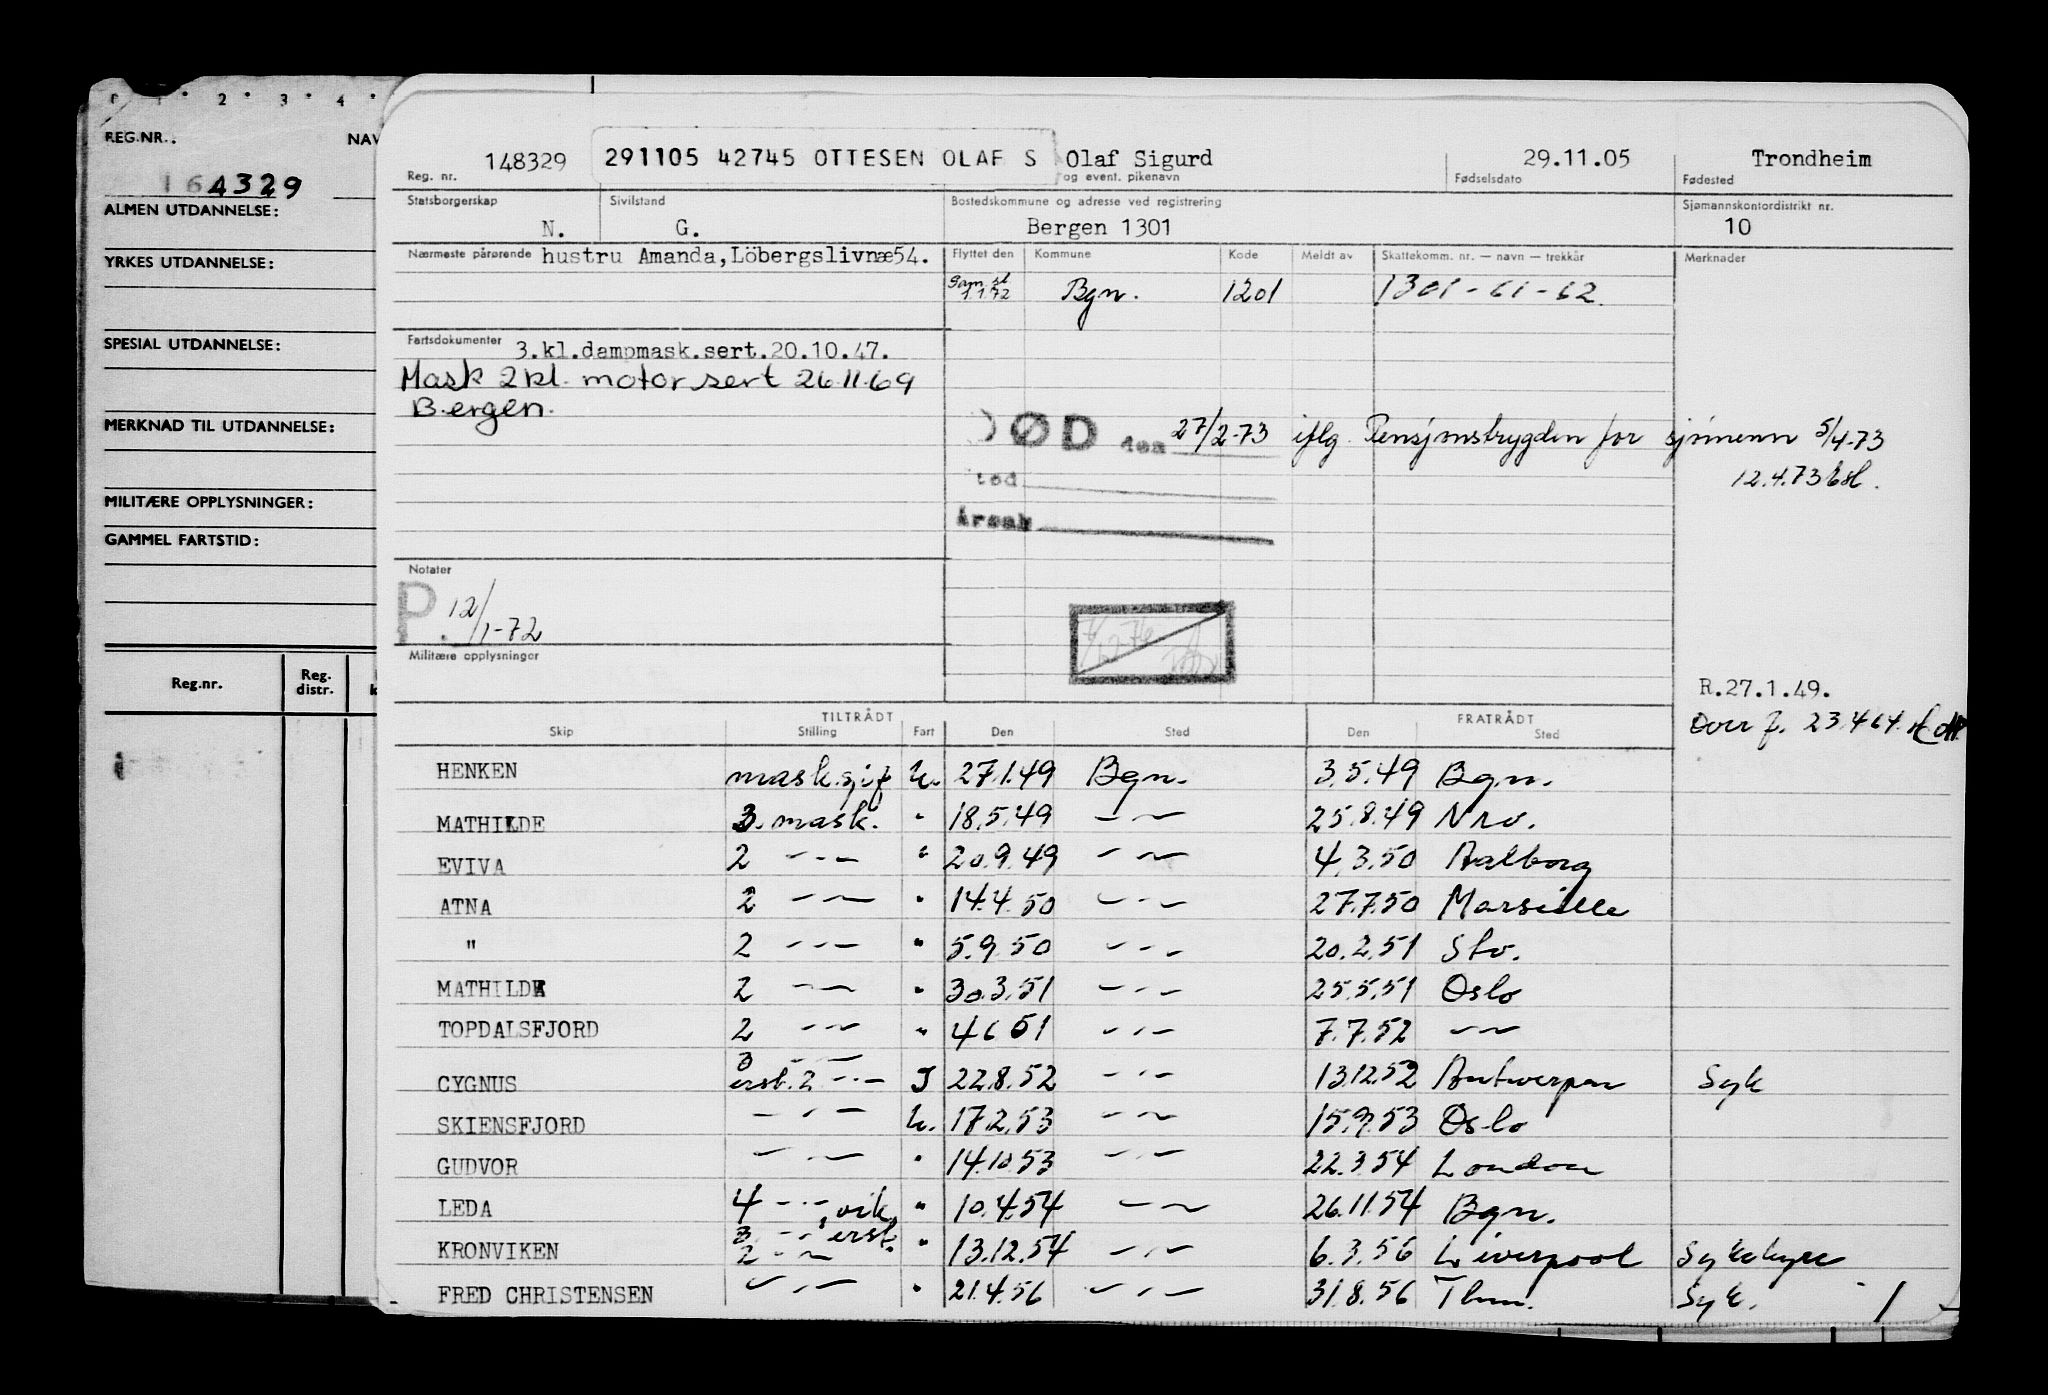 0 1 2 3 4
REG.NR.. NAV
164329
ALMEN UTDANNELSE:
YRKES UTDANNELSE:
SPESIAL UTDANNELSE:
MERKNAD TIL UTDANNELSE:
MILITÆRE OPPLYSNINGER:
GAMMEL FARTSTID:
Reg.nr. Reg. distr.
148329 291105 42745 OTTESEN OLAF S Olaf Sigurd 29.11.05 Trondheim
Reg. nr. og event. pikenavn Fødselsdato Fødested
Statsborgerskap Sivilstand Bostedskommune og adresse ved registrering Sjømannskontordistrikt nr.
N. G. Bergen 1301 10
Nærmeste pårørende hustru Amanda, Löbergslivnæ54. Flyttet den Kommune Kode Meldt av Skattekomm. nr. — navn — trekkår Merknader
1.1.72 Bgn. 1201 1301-61-62.
Fartsdokumenter 3.kl.dampmask.sert.20.10.47.
Mask 2kl. motor sert 26.11.69
Bergen.
ØD den 27/2-73 iflg. Pensjonstrygden for sjømenn 5/4-73
sted 12.4.73
Årsak
Notater
P. 12/1-72
Militære opplysninger
R.27.1.49.
Over f. 23.4.64.
TILTRÅDT FRATRÅDT
Skip Stilling Fart Den Sted Den Sted
HENKEN mask. U. 27.1.49 Bgn. 3.5.49 Bgn.
MATHILDE 3. mask. " 18.5.49 —"— 25.8.49 Nrv.
EVIVA 2 —"— " 20.9.49 —"— 4.3.50 Aalborg
ATNA 2 —"— " 14.4.50 —"— 27.7.50 Marseille
" 2 —"— " 5.9.50 —"— 20.2.51 Stv.
MATHILDE 2 —"— " 30.3.51 —"— 25.5.51 Oslo
TOPDALSFJORD 2 —"— " 4.6.51 —"— 7.7.52 —"—
3 —"—
CYGNUS erst. 2 —"— I 22.8.52 —"— 13.12.52 Antwerpen Syk
SKIENSFJORD —"— U. 17.2.53 —"— 15.9.53 Oslo
GUDVOR —"— " 14.10.53 —"— 22.3.54 London
LEDA 4 —"— vik. " 10.4.54 —"— 26.11.54 Bgn.
3 —"— erst.
KRONVIKEN 2 —"— " 13.12.54 —"— 6.3.56 Liverpool Sykehyre
FRED CHRISTENSEN —"— " 21.4.56 —"— 31.8.56 Thm. Syk. 1